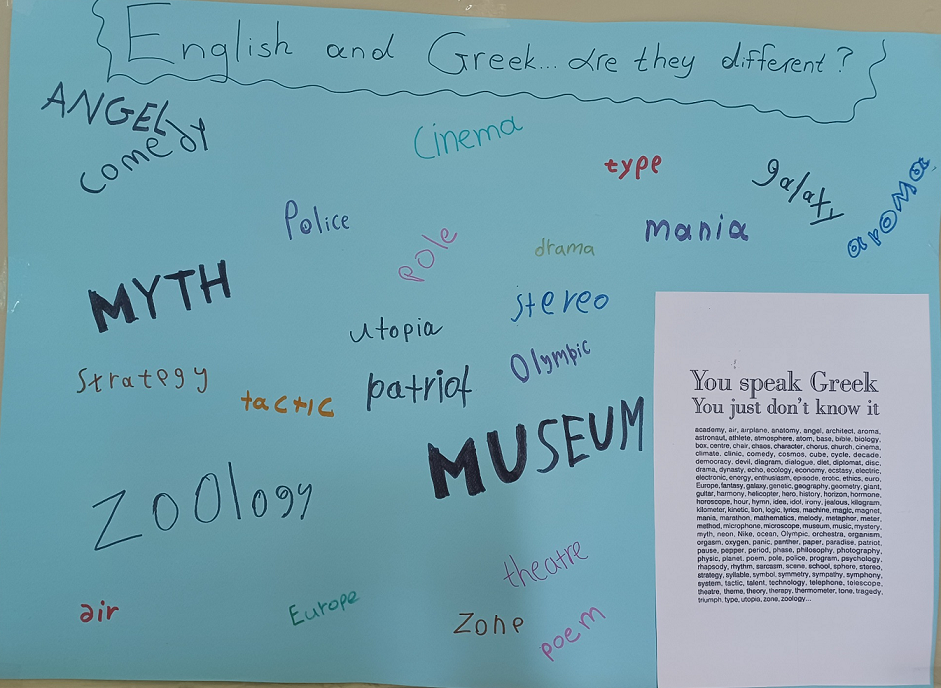 English and Greek... Are they different?
ANGEL
comedy
Cinema
type
galaxy
aroma
Police
pole
drama
mania
MYTH
utopia
stereo
strategy
tactic
patriot
Olympic
MUSEUM
zoology
theatre
air
Europe
zone
poem
You speak Greek
You just don't know it
academy, air, airplane, anatomy, angel, architect, aroma,
astronaut, athlete, atmosphere, atom, base, bible, biology,
box, centre, chair, chaos, character, chorus, church, cinema,
climate, clinic, comedy, cosmos, cube, cycle, decade,
democracy, devil, diagram, dialogue, diet, diplomat, disc,
drama, dynasty, echo, ecology, economy, ecstasy, electric,
electronic, energy, enthusiasm, episode, erotic, ethics, euro,
Europe, fantasy, galaxy, genetic, geography, geometry, giant,
guitar, harmony, helicopter, hero, history, horizon, hormone,
horoscope, hour, hymn, idea, idol, irony, jealous, kilogram,
kilometer, kinetic, lion, logic, lyrics, machine, magic, magnet,
mania, marathon, mathematics, melody, metaphor, meter,
method, microphone, microscope, museum, music, mystery,
myth, neon, Nike, ocean, Olympic, orchestra, organism,
orgasm, oxygen, panic, panther, paper, paradise, patriot,
pause, pepper, period, phase, philosophy, photography,
physic, planet, poem, pole, police, program, psychology,
rhapsody, rhythm, sarcasm, scene, school, sphere, stereo,
strategy, syllable, symbol, symmetry, sympathy, symphony,
system, tactic, talent, technology, telephone, telescope,
theatre, theme, theory, therapy, thermometer, tone, tragedy,
triumph, type, utopia, zone, zoology...